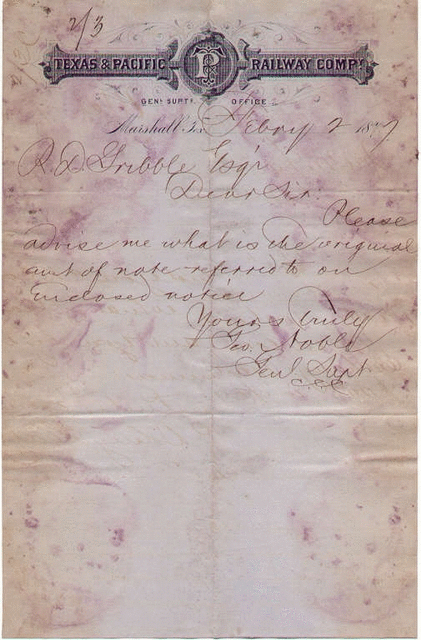 2/3
TEXAS & PACIFIC TP RAILWAY COMPY
GENL SUPTS OFFICE
Marshall Tex Febry 2 18
R. D. Gribble Esqr
Dear Sir
Please
advise me what is the original
amt of note referred to on
enclosed notice
Yours Truly
Geo. Noble
Genl Supt